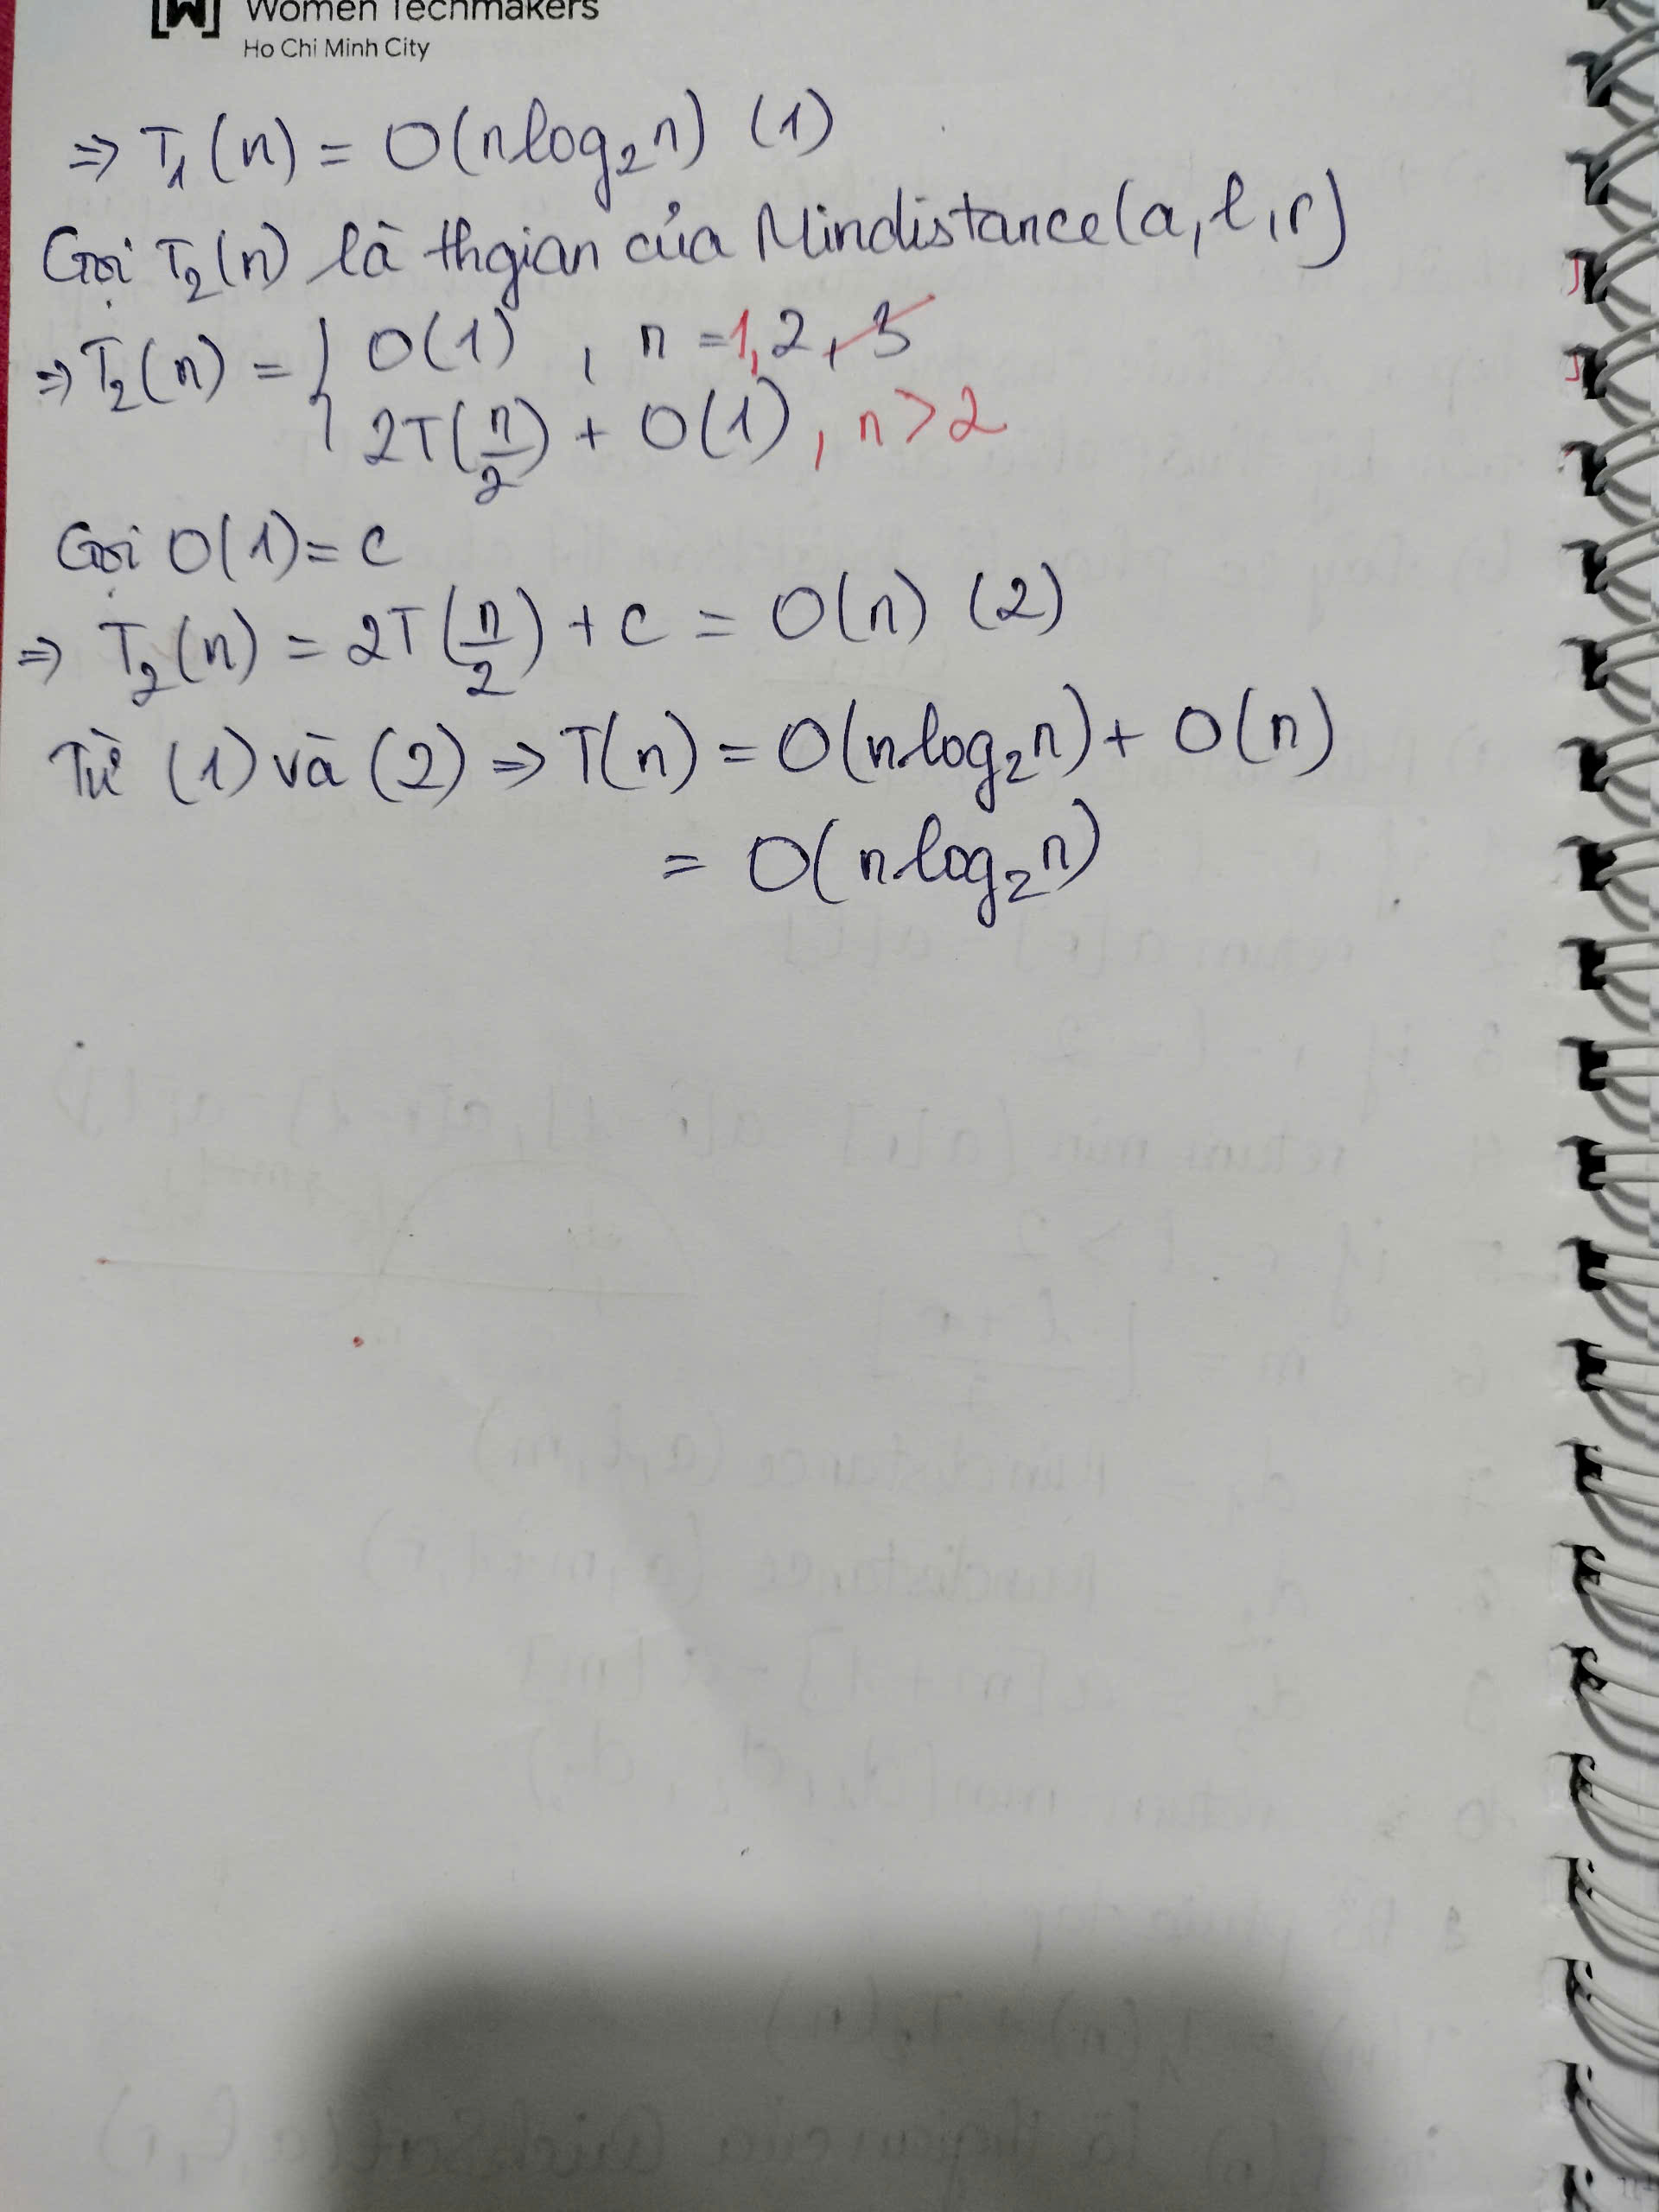 [W] Women Techmakers
Ho Chi Minh City
⇒ T₁(n) = O(nlog₂n) (1)
Gọi T₂(n) là thgian của Mindistance(a, l, r)
⇒ T₂(n) = { O(1) , n = 1, 2, 3
2T(n/2) + O(1), n > 2
Gọi O(1) = c
⇒ T₂(n) = 2T(n/2) + c = O(n) (2)
Từ (1) và (2) ⇒ T(n) = O(n.log₂n) + O(n)
= O(n.log₂n)